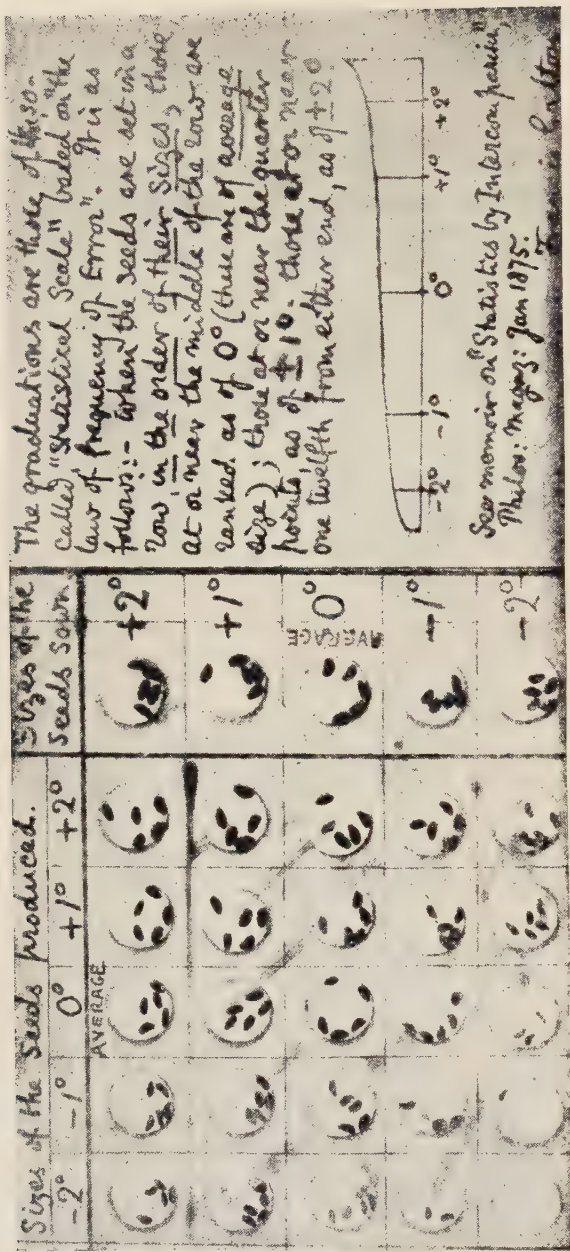 Sizes of the Seeds produced.
-2° -1° 0° +1° +2°
AVERAGE
Sizes of the
Seeds Sown
+2°
+1°
0°
AVERAGE
-1°
-2°
The graduations are those of the so-
called "Statistical Scale" based on "the
law of frequency of Error". It is as
follows:- When the seeds are set in a
row, in the order of their sizes, those
at or near the middle of the row are
ranked as of 0° (these are of average
size); those at or near the quarter
points, as of ±1°. those at or near
one twelfth from either end, as of ±2°
-2° -1° 0° +1° +2°
See memoir on "Statistics by Intercomparison"
Philos: Magaz: Jan 1875.
Francis Galton